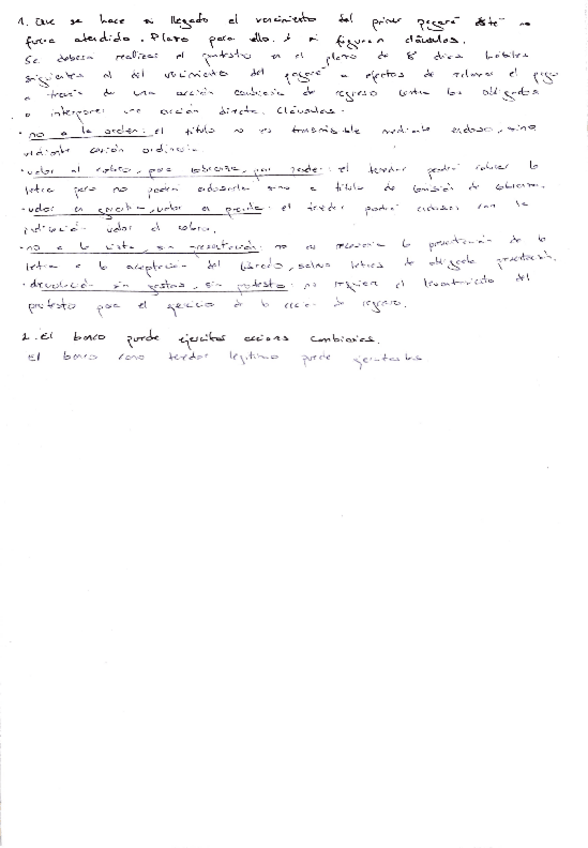 1. Que se hace si llegado el vencimiento del primer pagaré éste no
fuera atendido. Plazo para ello. Y si figuran cláusulas.
Se deberá realizar el protesto en el plazo de 8 días hábiles
siguientes al del vencimiento del pagaré a efectos de reclamar el pago
a través de una acción cambiaria de regreso contra los obligados
o interponer una acción directa. Cláusulas.
· no a la orden: el título no es transmisible mediante endoso, sino
mediante cesión ordinaria.
· valor al cobro, para cobranza, por poder: el tenedor podrá cobrar la
letra pero no podrá endosarla sino a título de comisión de cobranza.
· valor en garantía, valor en prenda: el tenedor podrá endosar con la
indicación valor al cobro.
· no a la vista, sin presentación: no es necesaria la presentación de la
letra a la aceptación del librado, salvo letras de obligada presentación.
· devolución sin gastos, sin protesto: no requiere el levantamiento del
protesto para el ejercicio de la acción de regreso.
2. El banco puede ejercitar acciones cambiarias.
El banco como tenedor legítimo puede ejecutarlas